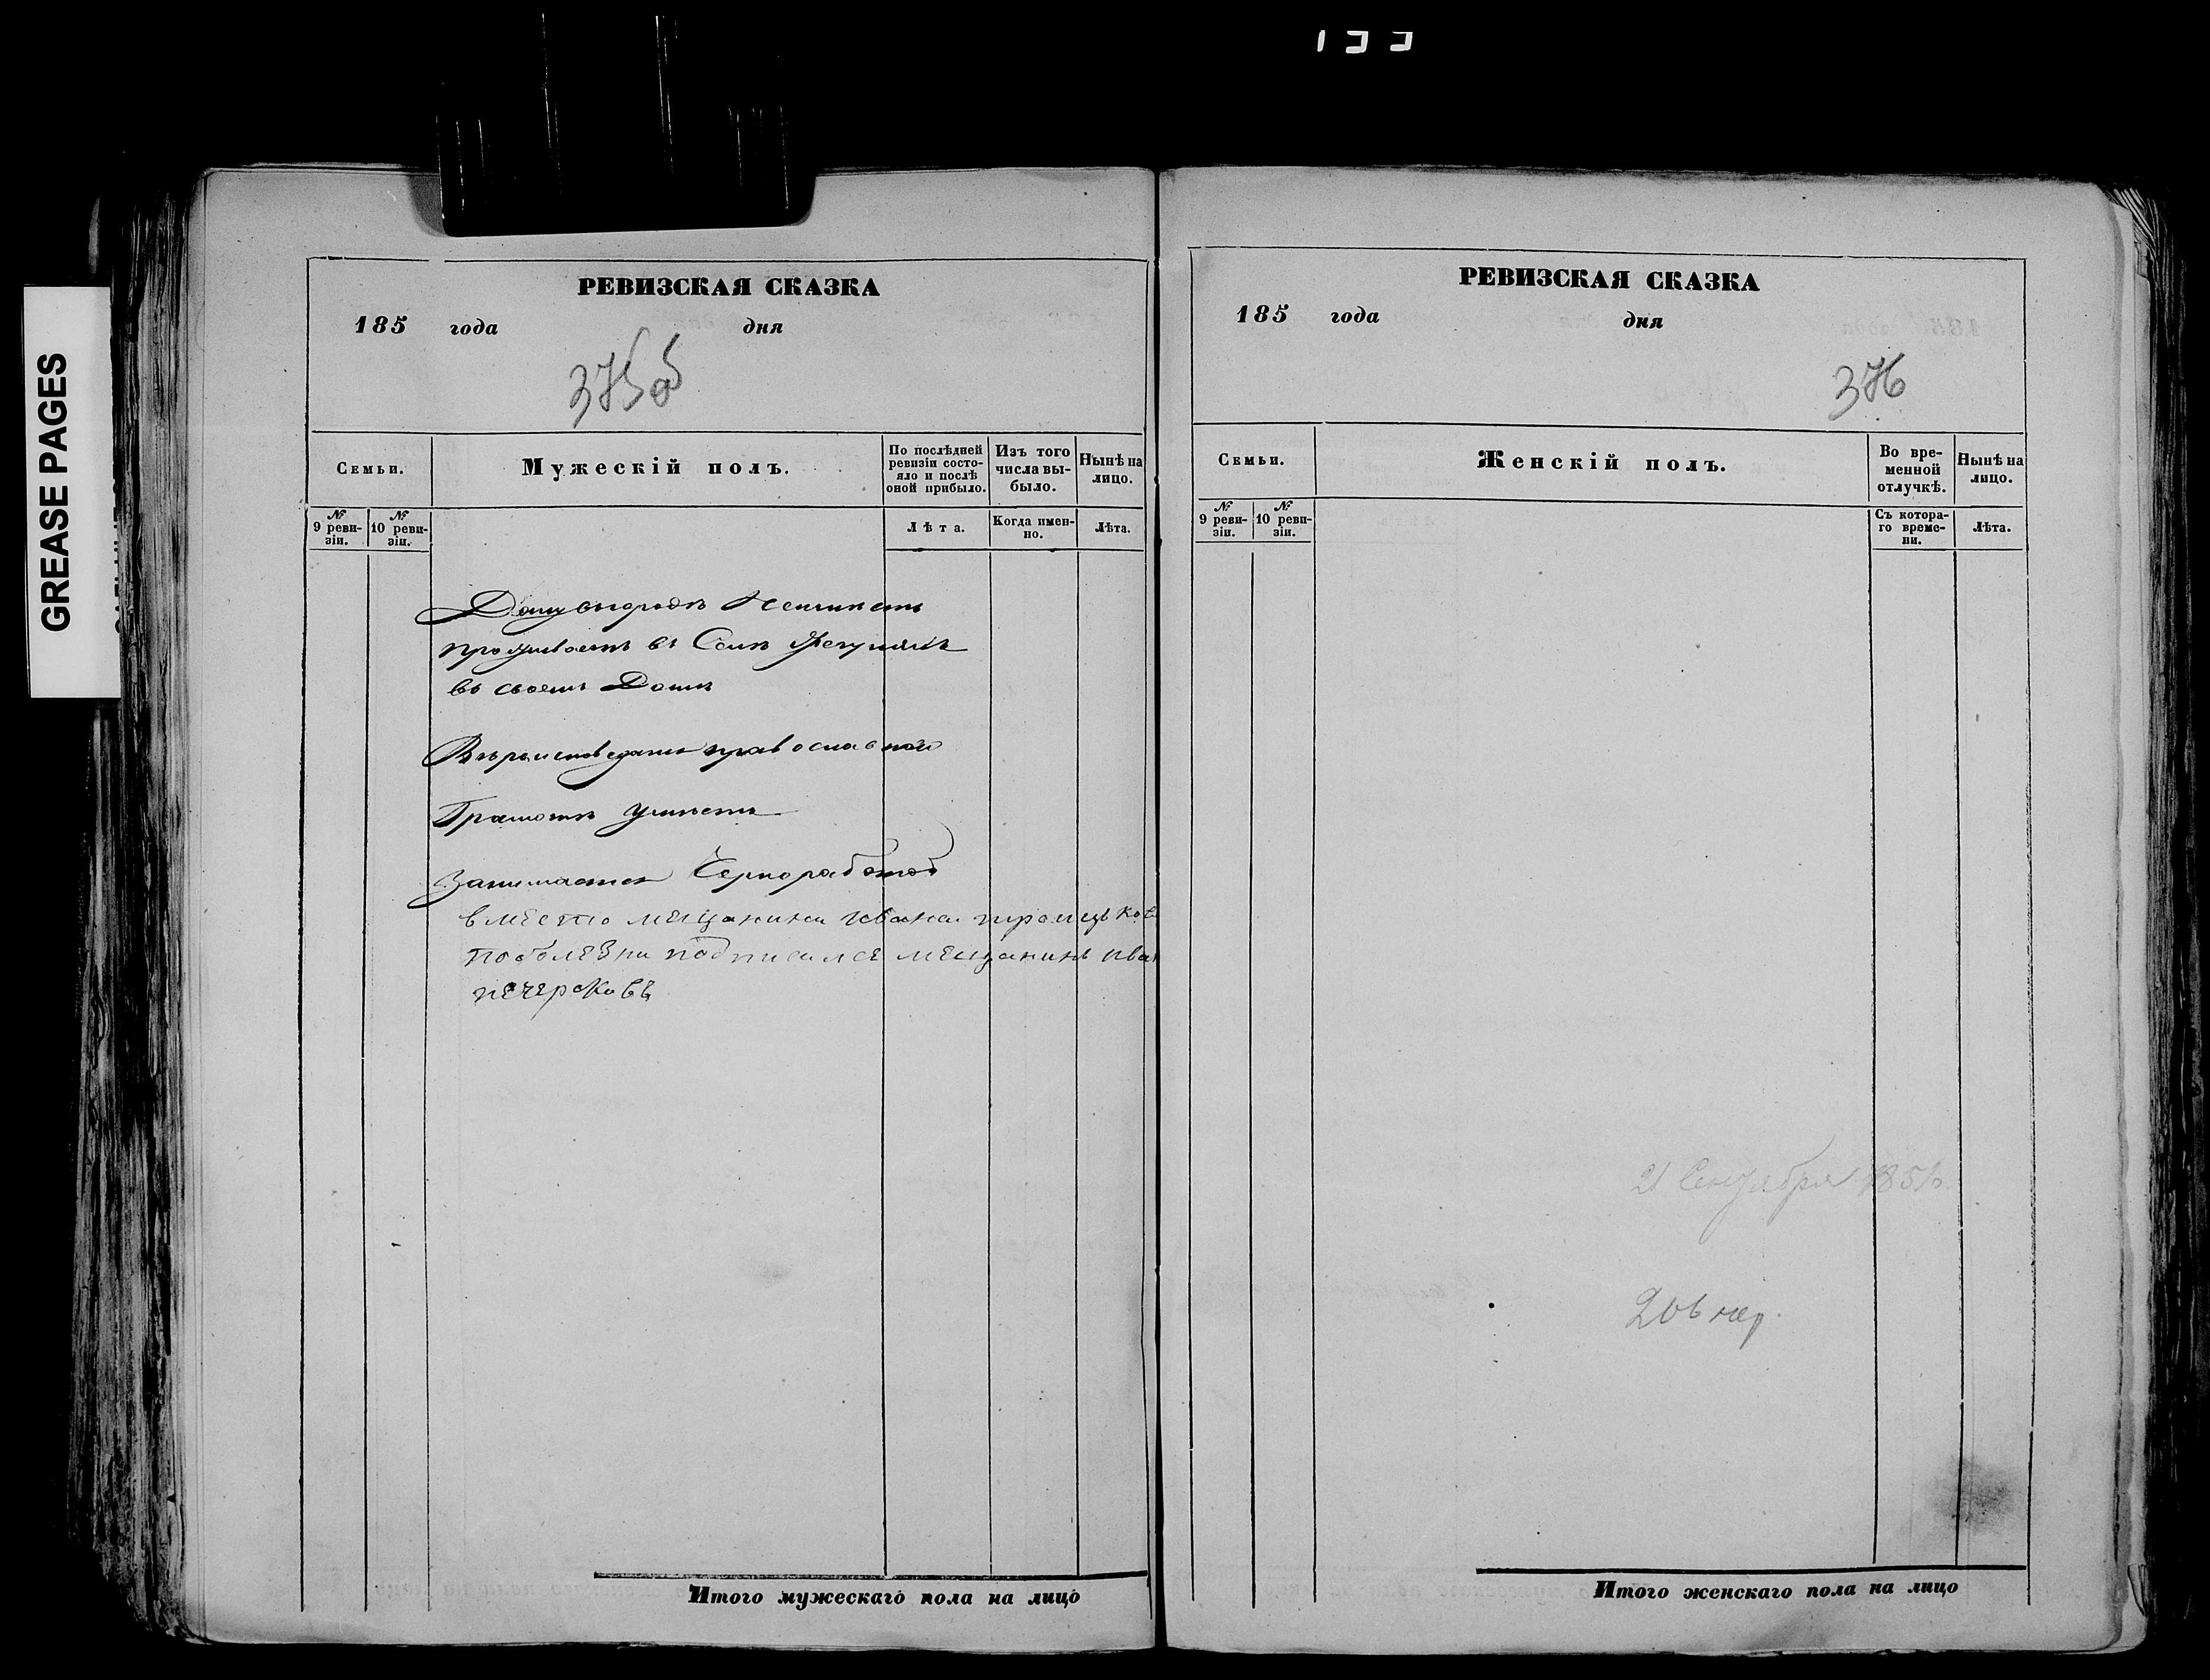 GREASE PAGES
РЕВИЗСКАЯ СКАЗКА
185 года дня
375 об
Семьи.
Мужескій полъ.
По послѣдней ревизіи состояло и послѣ оной прибыло.
Изъ того числа выбыло.
Нынѣ на лицо.
№ 9 ревизіи.
№ 10 ревизіи.
Лѣта.
Когда именно.
Лѣта.
Дому въ городѣ Неимиетъ
проживаетъ въ Селѣ
въ своемъ Домѣ
Вѣроисповедания православной
Грамотѣ умѣетъ
Занимается Черноработой
вместо мещанина ивана
поболезни подписался мещанинъ ива
печерсковъ
Итого мужескаго пола на лицо
РЕВИЗСКАЯ СКАЗКА
185 года дня
376
Семьи.
Женскій полъ.
Во временной отлучкѣ.
Нынѣ на лицо.
№ 9 ревизіи.
№ 10 ревизіи.
Съ котораго времени.
Лѣта.
21 Сентября
Итого женскаго пола на лицо